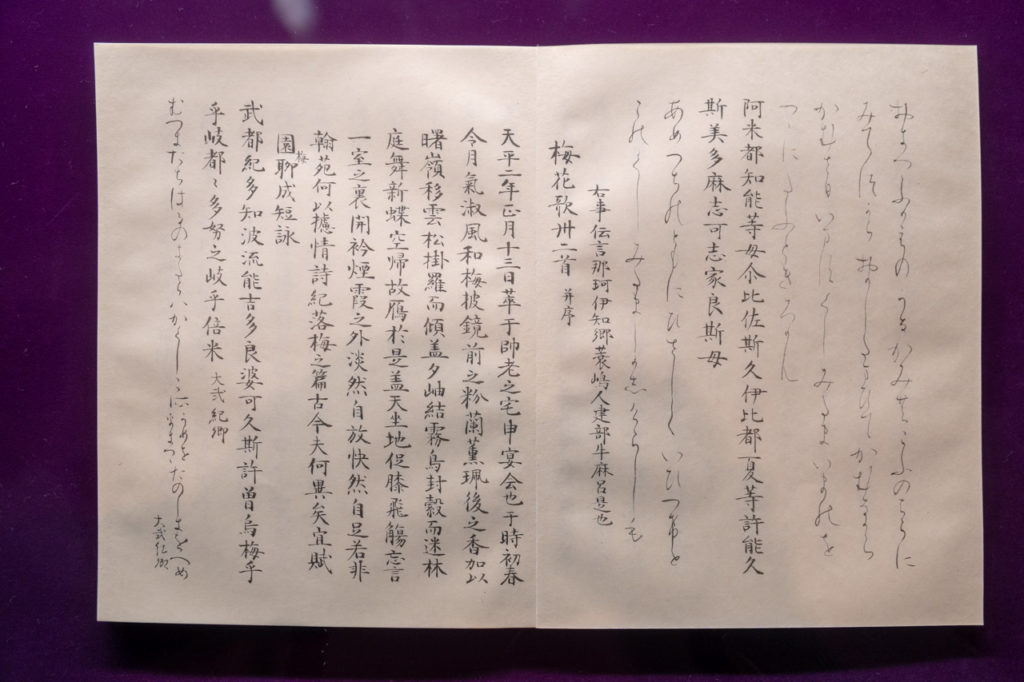 おきつふかえの うなかみのこふのはらに
みてつから おかしたまひて かむなから
かむさひいますくしみたま いまのを
つゝにたふときろかん
阿米都知能等毋尒比佐斯久伊比都夏等許能久
斯美多麻志可志家良斯毋
あめつちのともにひさしくいひつけと
このくしみたましかしけらしも
右事伝言那珂伊知郷蓑嶋人建部牛麻呂是也
梅花歌卅二首 并序
天平二年正月十三日萃于帥老之宅申宴会也于時初春
令月氣淑風和梅披鏡前之粉蘭薫珮後之香加以
曙嶺移雲松掛羅而傾盖夕岫結霧鳥封縠而迷林
庭舞新蝶空帰故鴈於是盖天坐地促膝飛觴忘言
一室之裏開衿煙霞之外淡然自放快然自足若非
翰苑何以攄情詩紀落梅之篇古今夫何異矣宜賦
園梅聊成短詠
武都紀多知波流能吉多良婆可久斯許曽烏梅乎
乎岐都々多努之岐乎倍米 大弐紀卿
むつきたちはるのきたらはかくしこそうめををきつゝたのしきをへめ